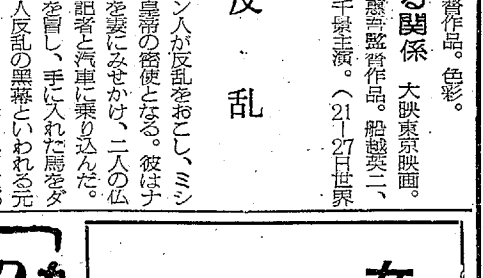 督作品。色彩。
る関係 大映東京映画。
憲吾監督作品。船越英二、
千景主演。(21―27日世界
反乱
ン人が反乱をおこし、ミシ
皇帝の密使となる。彼はナ
を妻にみせかけ、二人の仏
記者と汽車に乗り込んだ。
を冒し、手に入れた馬をダ
人反乱の黒幕といわれる元